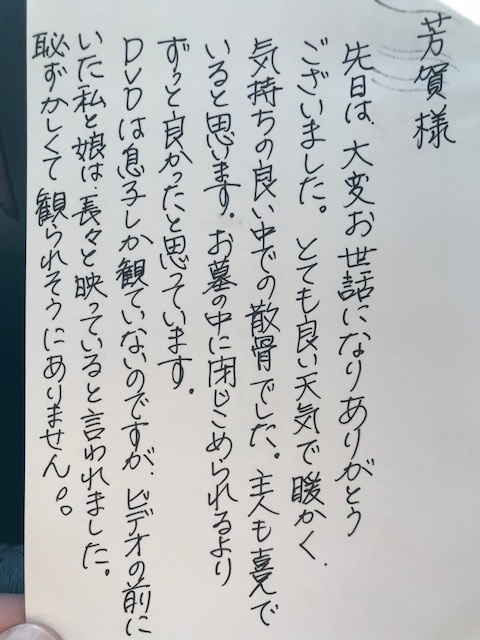 芳賀様
先日は、大変お世話になりありがとう
ございました。とても良い天気で暖かく、
気持ちの良い中での散骨でした。主人も喜んで
いると思います。お墓の中に閉じこめられるより
ずっと良かったと思っています。
DVDは息子しか観ていないのですが、ビデオの前に
いた私と娘は、長々と映っていると言われました。
恥ずかしくて観られそうにありません。。